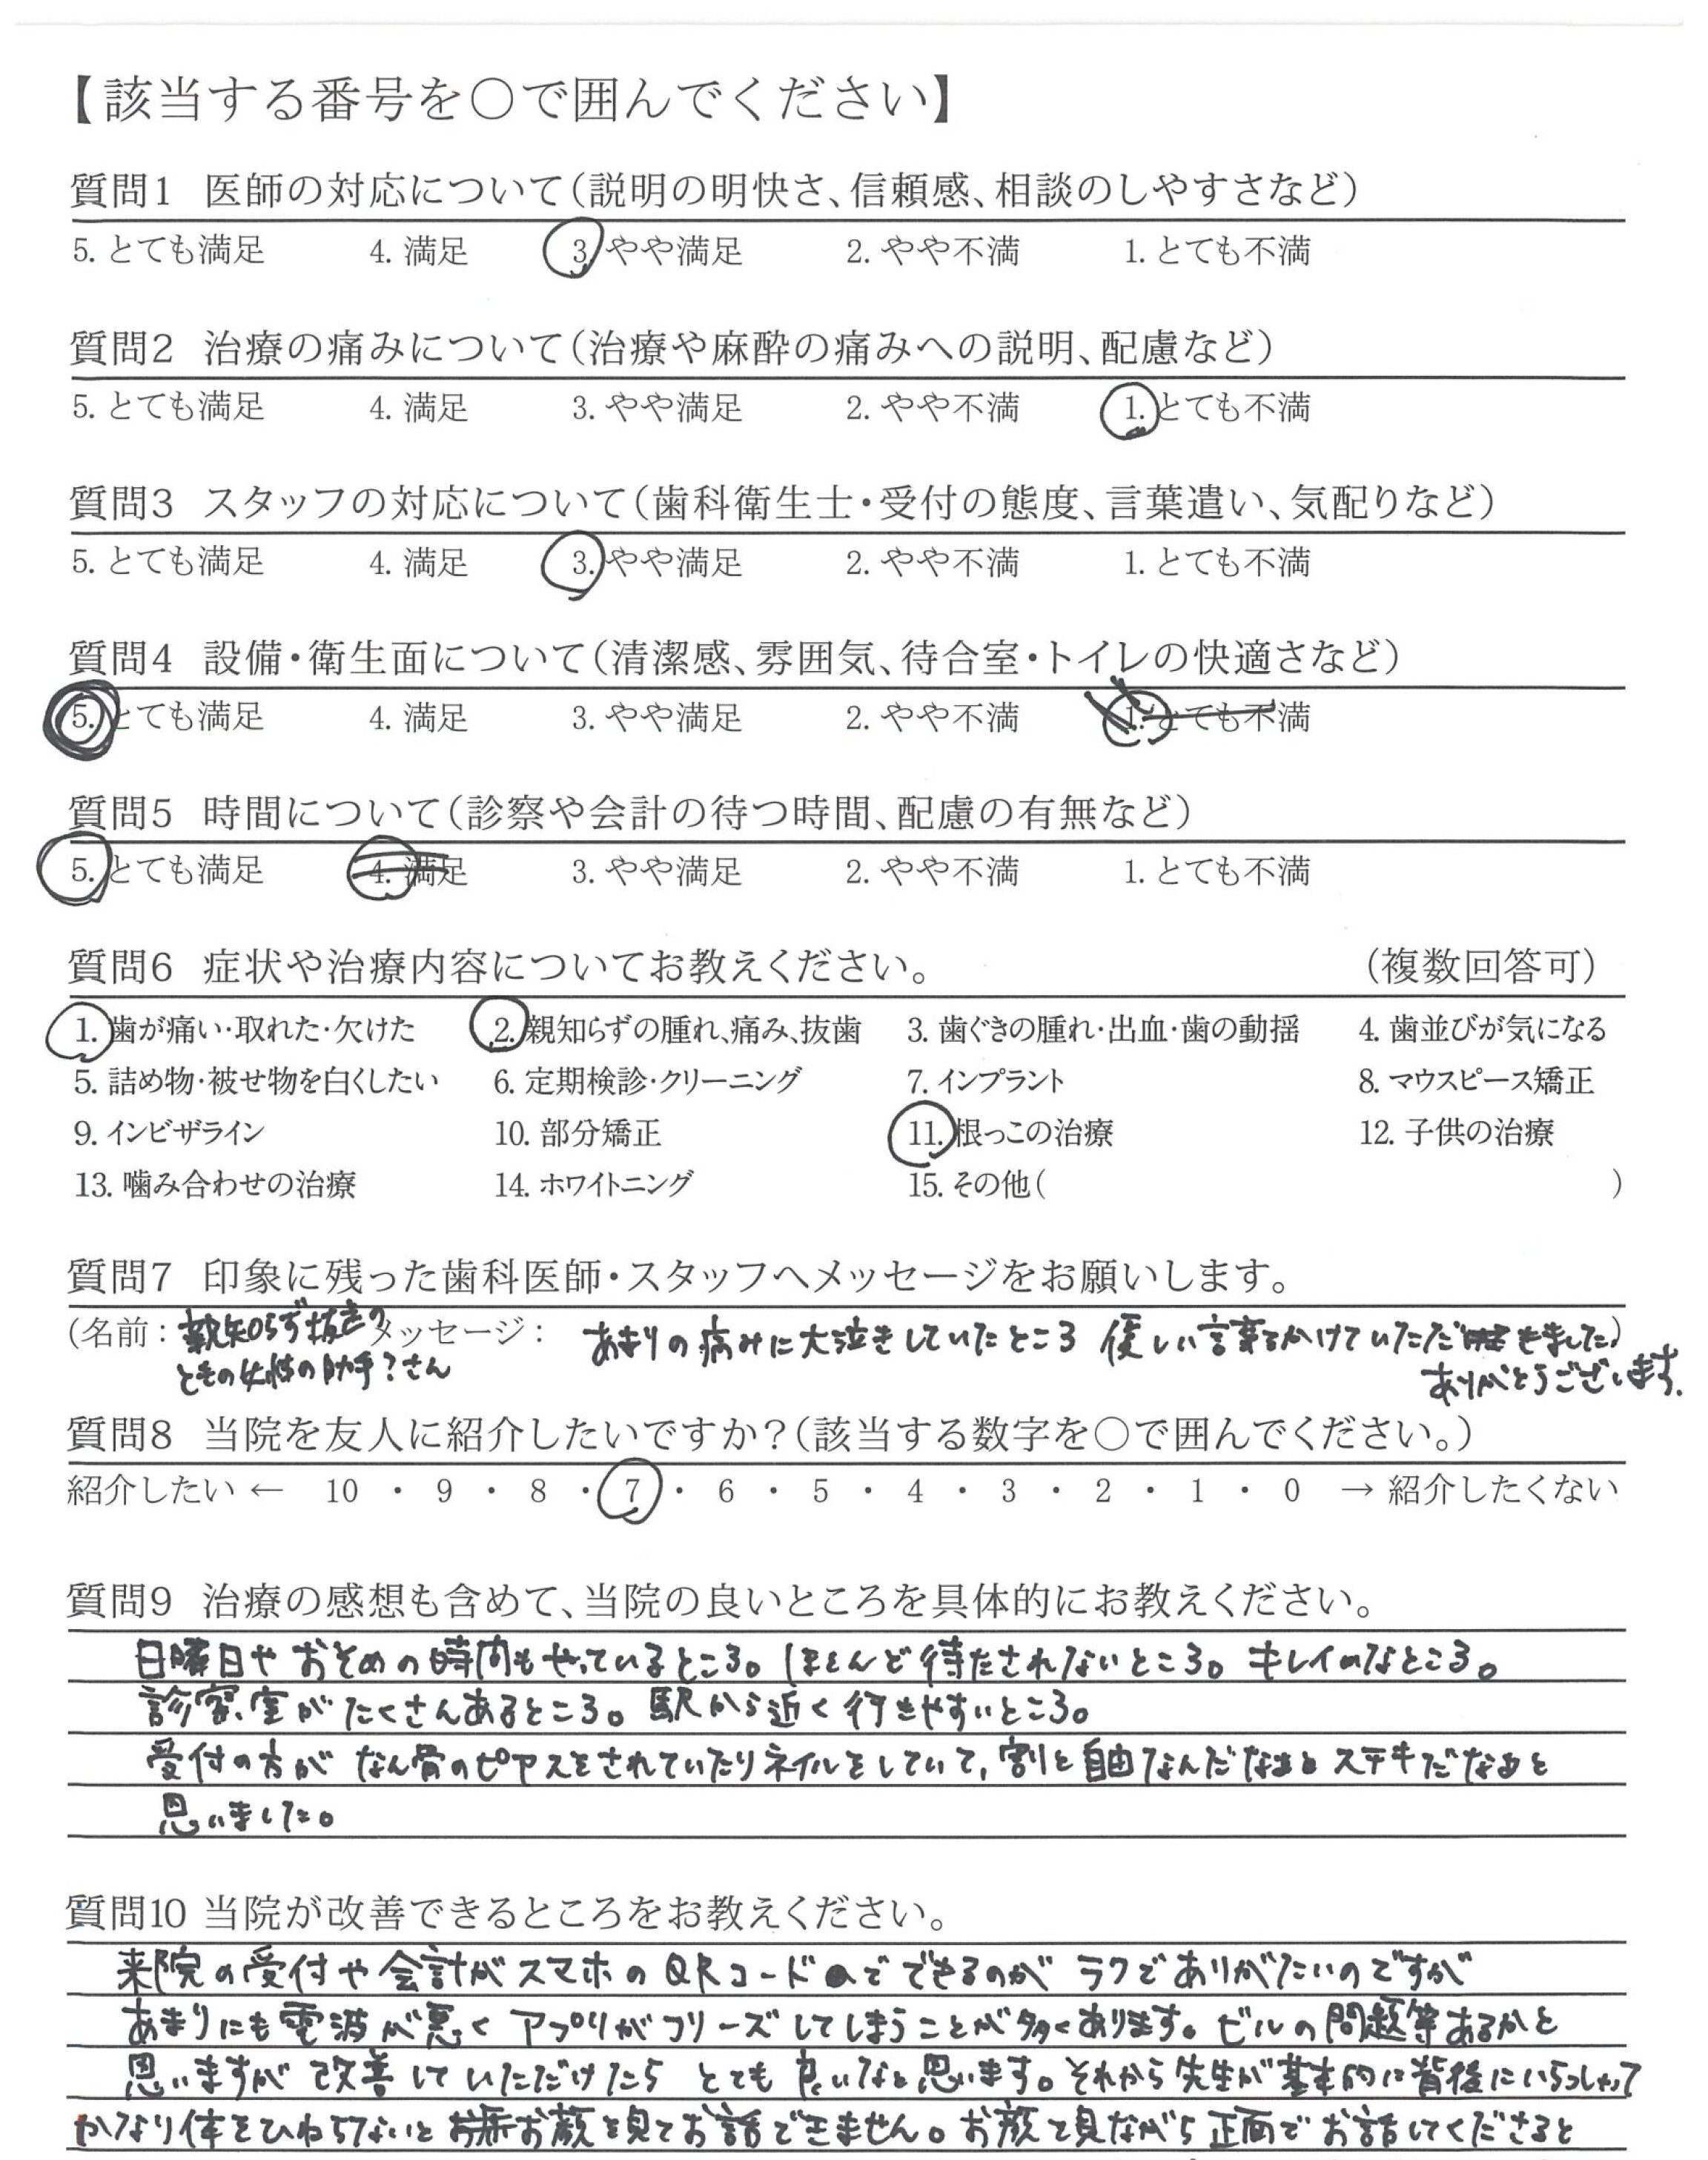 【該当する番号を〇で囲んでください】
質問1 医師の対応について(説明の明快さ、信頼感、相談のしやすさなど)
5. とても満足 4. 満足 3. やや満足 2. やや不満 1. とても不満
質問2 治療の痛みについて(治療や麻酔の痛みへの説明、配慮など)
5. とても満足 4. 満足 3. やや満足 2. やや不満 1. とても不満
質問3 スタッフの対応について(歯科衛生士・受付の態度、言葉遣い、気配りなど)
5. とても満足 4. 満足 3. やや満足 2. やや不満 1. とても不満
質問4 設備・衛生面について(清潔感、雰囲気、待合室・トイレの快適さなど)
5. とても満足 4. 満足 3. やや満足 2. やや不満 1. とても不満
質問5 時間について(診察や会計の待つ時間、配慮の有無など)
5. とても満足 4. 満足 3. やや満足 2. やや不満 1. とても不満
質問6 症状や治療内容についてお教えください。 (複数回答可)
1. 歯が痛い・取れた・欠けた 2. 親知らずの腫れ、痛み、抜歯 3. 歯ぐきの腫れ・出血・歯の動揺 4. 歯並びが気になる
5. 詰め物・被せ物を白くしたい 6. 定期検診・クリーニング 7. インプラント 8. マウスピース矯正
9. インビザライン 10. 部分矯正 11. 根っこの治療 12. 子供の治療
13. 噛み合わせの治療 14. ホワイトニング 15. その他( )
質問7 印象に残った歯科医師・スタッフへメッセージをお願いします。
(名前: 親知らず抜きの メッセージ: あまりの痛みに大泣きしていたところ 優しい言葉をかけていただきました)
ときの女性の助手?さん ありがとうございます。
質問8 当院を友人に紹介したいですか?(該当する数字を〇で囲んでください。)
紹介したい ← 10 ・ 9 ・ 8 ・ 7 ・ 6 ・ 5 ・ 4 ・ 3 ・ 2 ・ 1 ・ 0 → 紹介したくない
質問9 治療の感想も含めて、当院の良いところを具体的にお教えください。
日曜日や おそめの時間もやっているところ。ほとんど待たされないところ。キレイなところ。
診察室がたくさんあるところ。駅から近く行きやすいところ。
受付の方が なん骨のピアスをされていたりネイルをしていて、割と自由なんだなあとステキだなあと
思いました。
質問10 当院が改善できるところをお教えください。
来院の受付や会計がスマホのQRコードでできるのが ラクでありがたいのですが
あまりにも電波が悪く アプリがフリーズしてしまうことが多くあります。ビルの問題等あるかと
思いますが改善していただけたら とても良いなと思います。それから先生が基本的に背後にいらっしゃって
かなり体をひねらないと お顔を見てお話できません。お顔を見ながら正面でお話してくださると